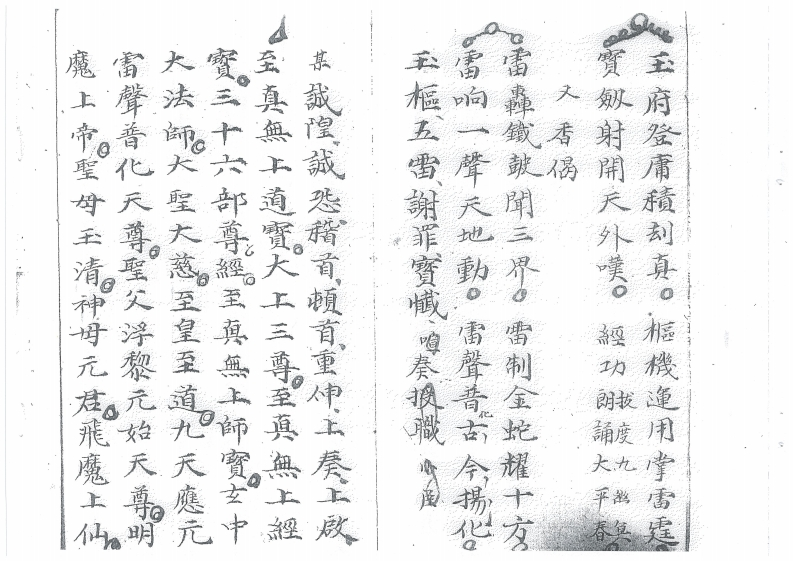 玉府登庸積刦真 樞機運用掌雷霆
寶劔射開天外嘆 經功拔度九幽冥 朗誦大平春
又香偈
雷轟鐵皷聞三界 雷制金蛇耀十方
雷响一聲天地動 雷聲普化古今揚化
玉樞五雷謝罪寶懺 宣奏授職小臣
某誠隍誠恐稽首頓首重伸上奏上啟
至真無上道寶大上三尊至真無上經
寶三十六部尊經至真無上師寶玄中
大法師大聖大慈至皇至道九天應元
雷聲普化天尊聖父浮黎元始天尊明
魔上帝聖母玉清神母元君飛魔上仙